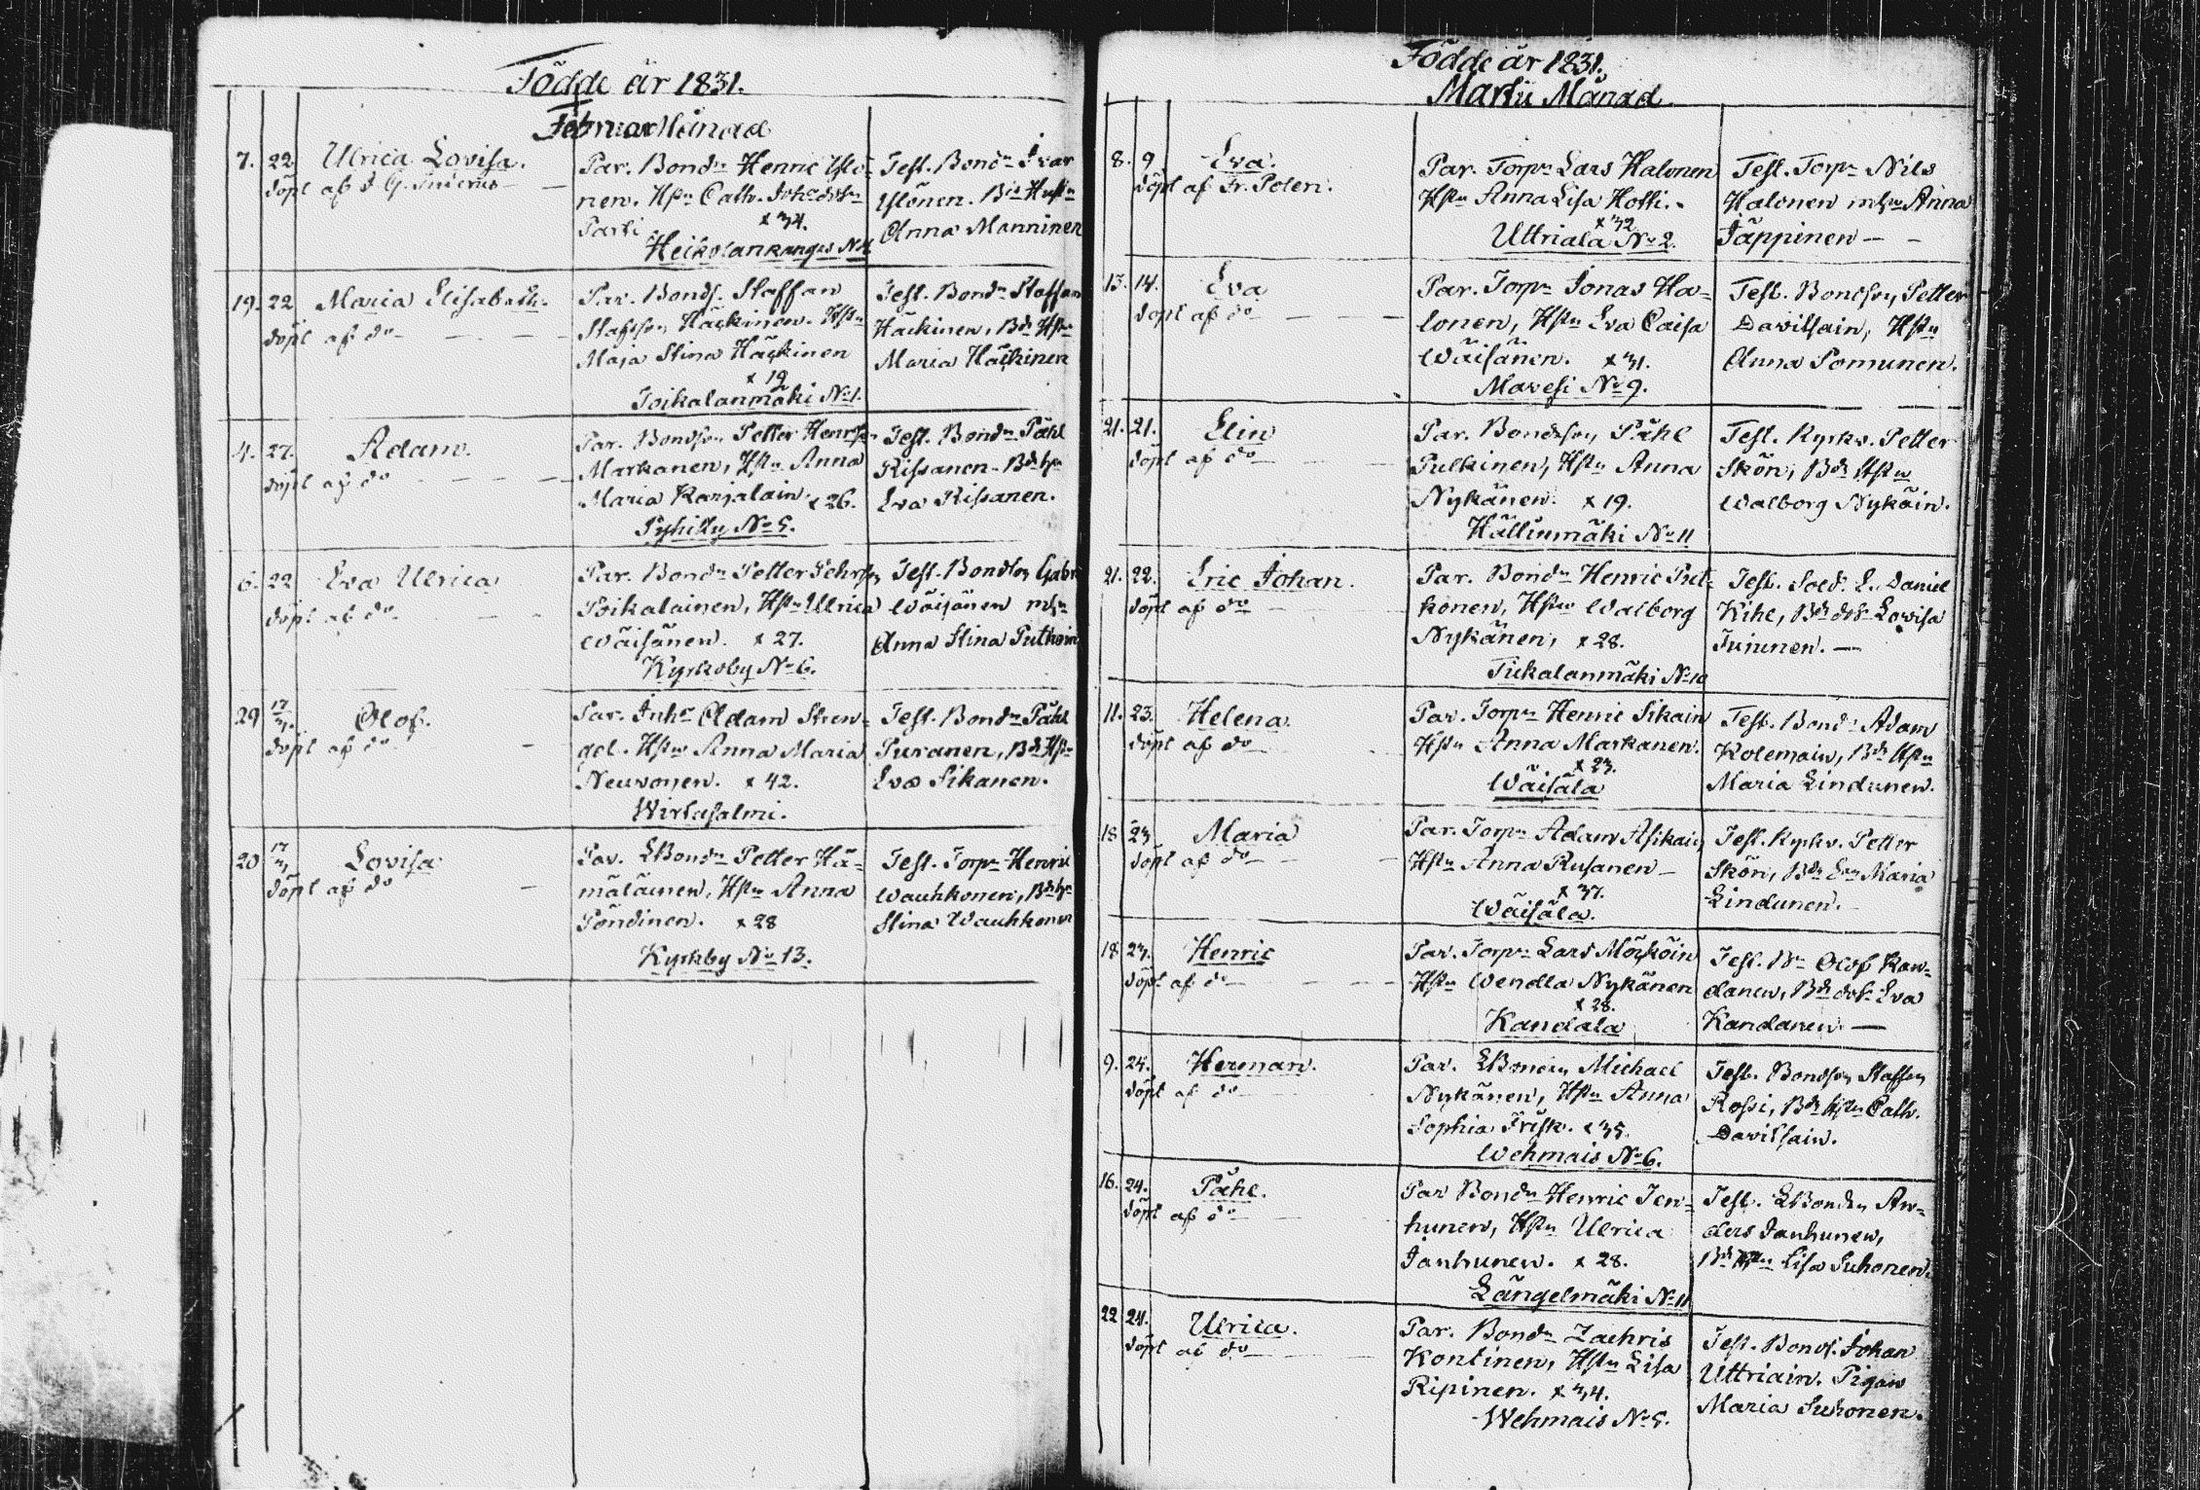 Födde år 1831.
Februar Månad
7. 22 Ulrica Lovisa.
döpt af J G.
Par. Bondn Henric Ylö-
nen. Hstn Cath. Johsdotr
Parti x 34.
Heikolankangas No 4
Test. Bondn Ivar
Ylönen. Bds Hustn
Anna Manninen
19. 22 Maria Elisabeth.
döpt af do
Par. Bonds. Staffan
Stafsson Häckinen. Hstn
Maja Stina Häckinen
x 19
Toikalanmäki No 1.
Test. Bondn Staffan
Häckinen, Bds Hstn
Maria Häckinen
4. 27. Adam.
döpt af do
Par. Bondson Petter Henrsson
Markanen, Hstn Anna
Maria Karjalain x 26.
Pyhitty No 5.
Test. Bondn Påhl
Rissanen. Bds hn
Eva Rissanen.
6. 22 Eva Ulrica
döpt af do
Par. Bondn Petter Pehrson
Poikalainen, Hstn Ulrica
Wäisänen. x 27.
Kyrkoby No 6.
Test. Bondson Gabri
Wäisänen mhn
Anna Stina Putkoin
29 17/3. Olof.
döpt af do
Par. Inhs Adam Stren-
gel. Hstn Anna Maria
Neuvonen. x 42.
Wirtasalmi.
Test. Bondn Påhl
Puranen, Bds Hstn
Eva Sikanen.
20 17/3 Lovisa
döpt af do
Par. LBondn Petter Hä-
mäläinen, Hstn Anna
Pöndinen. x 28
Kyrkby No 13.
Test. Torpn Henric
Wauhkonen, Bds hn
Stina Wauhkonen
Födde år 1831.
Martii Månad
8. 9 Eva.
döpt af Fr. Polen.
Par. Torpn Lars Halonen
Hstn Anna Lisa Hotti.
x 32
Uttriala No 2.
Test. Torpn Nils
Halonen mhn Anna
Jäppinen
13. 14. Eva
döpt af do
Par. Torpn Jonas Ha-
lonen, Hstn Eva Caisa
Wäisänen. x 31.
Maresi No 9.
Test. Bondson Petter
Davitsain, Hstn
Anna Pomunen.
21. 21. Elin
döpt af do
Par. Bondeson Påhl
Pulkinen, Hstn Anna
Nykänen. x 19.
Hällinmäki No 11
Test. Kyrkv. Petter
Skön, Bds Hstn
Walborg Nykäin.
21. 22. Eric Johan.
döpt af do
Par. Bondn Henric Put-
konen, Hstn Walborg
Nykänen, x 28.
Tukalanmäki No 10
Test. Sold. L. Daniel
Kihl, Bds dotr Lovisa
11. 23. Helena
döpt af do
Par. Torpn Henric Sikain
Hstn Anna Markanen.
x 23.
Wäisälä
Test. Bondn Adam
Kolemain, Bds Hstn
Maria Lindunen.
18 23 Maria
döpt af do
Par. Torpn Adam Asikain
Hstn Anna Rusanen
x 37.
Wäisälä.
Test. Kyrkv. Petter
Skön, Bds Enn Maria
Lindunen.
18 23. Henric
döpt af do
Par. Torpn Lars Mörköin
Hstn Wendla Nykänen
x 28.
Kandala
Test. Bn Olof Kan-
danen, Bds dotr Eva
Kandanen.
9. 24. Herman.
döpt af do
Par. LBonden Michael
Nykänen, Hstn Anna
Sophia Frisk. x 35.
Wehmais No 6.
Test. Bondson Staffan
Rossi, Bds Hstn Cath.
Davitsain.
16. 24. Påhl.
döpt af do
Par Bondn Henric Jan-
hunen, Hstn Ulrica
Janhunen. x 28.
Längelmäki No 11
Test. LBonden An-
ders Janhunen,
Bds Hstn Lisa Suhonen.
22 24. Ulrica.
döpt af do
Par. Bondn Zachris
Kontinen, Hstn Lisa
Ripinen. x 34.
Wehmais No 5.
Test. Bonds. Johan
Uttriain. Pigan
Maria Suhonen.